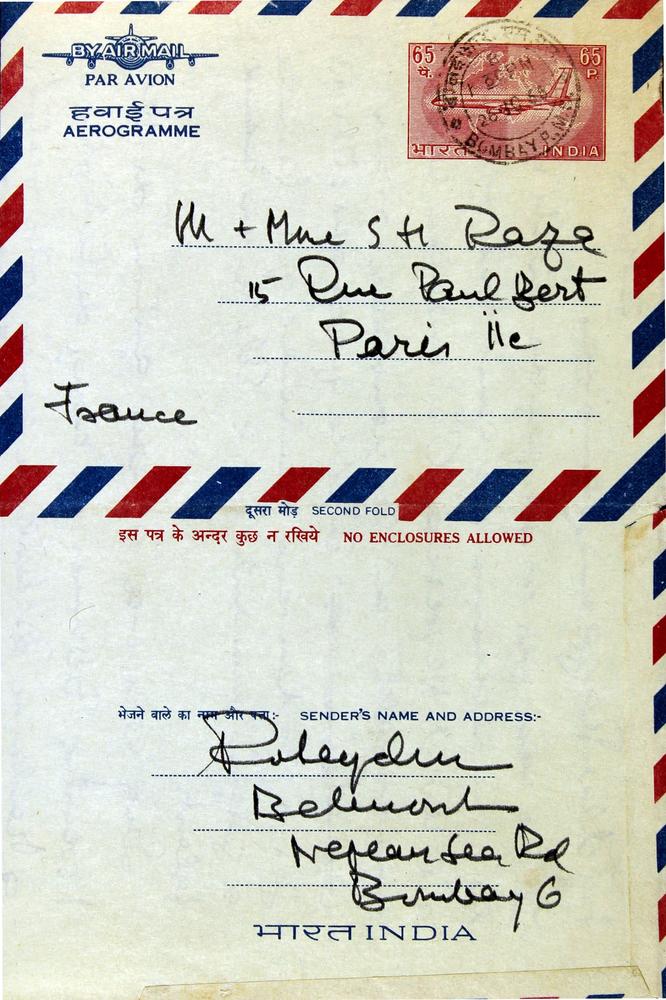 BY AIR MAIL
PAR AVION
हवाई पत्र
AEROGRAMME
65 65
पै. P.
भारत INDIA
BOMBAY
M + Mme S H Raza
15 Rue Paul Bert
Paris 11e
France
दूसरा मोड़ SECOND FOLD
इस पत्र के अन्दर कुछ न रखिये NO ENCLOSURES ALLOWED
भेजने वाले का नाम और पता:- SENDER'S NAME AND ADDRESS:-
Belmont
Nepean Sea Rd
Bombay 6
भारत INDIA